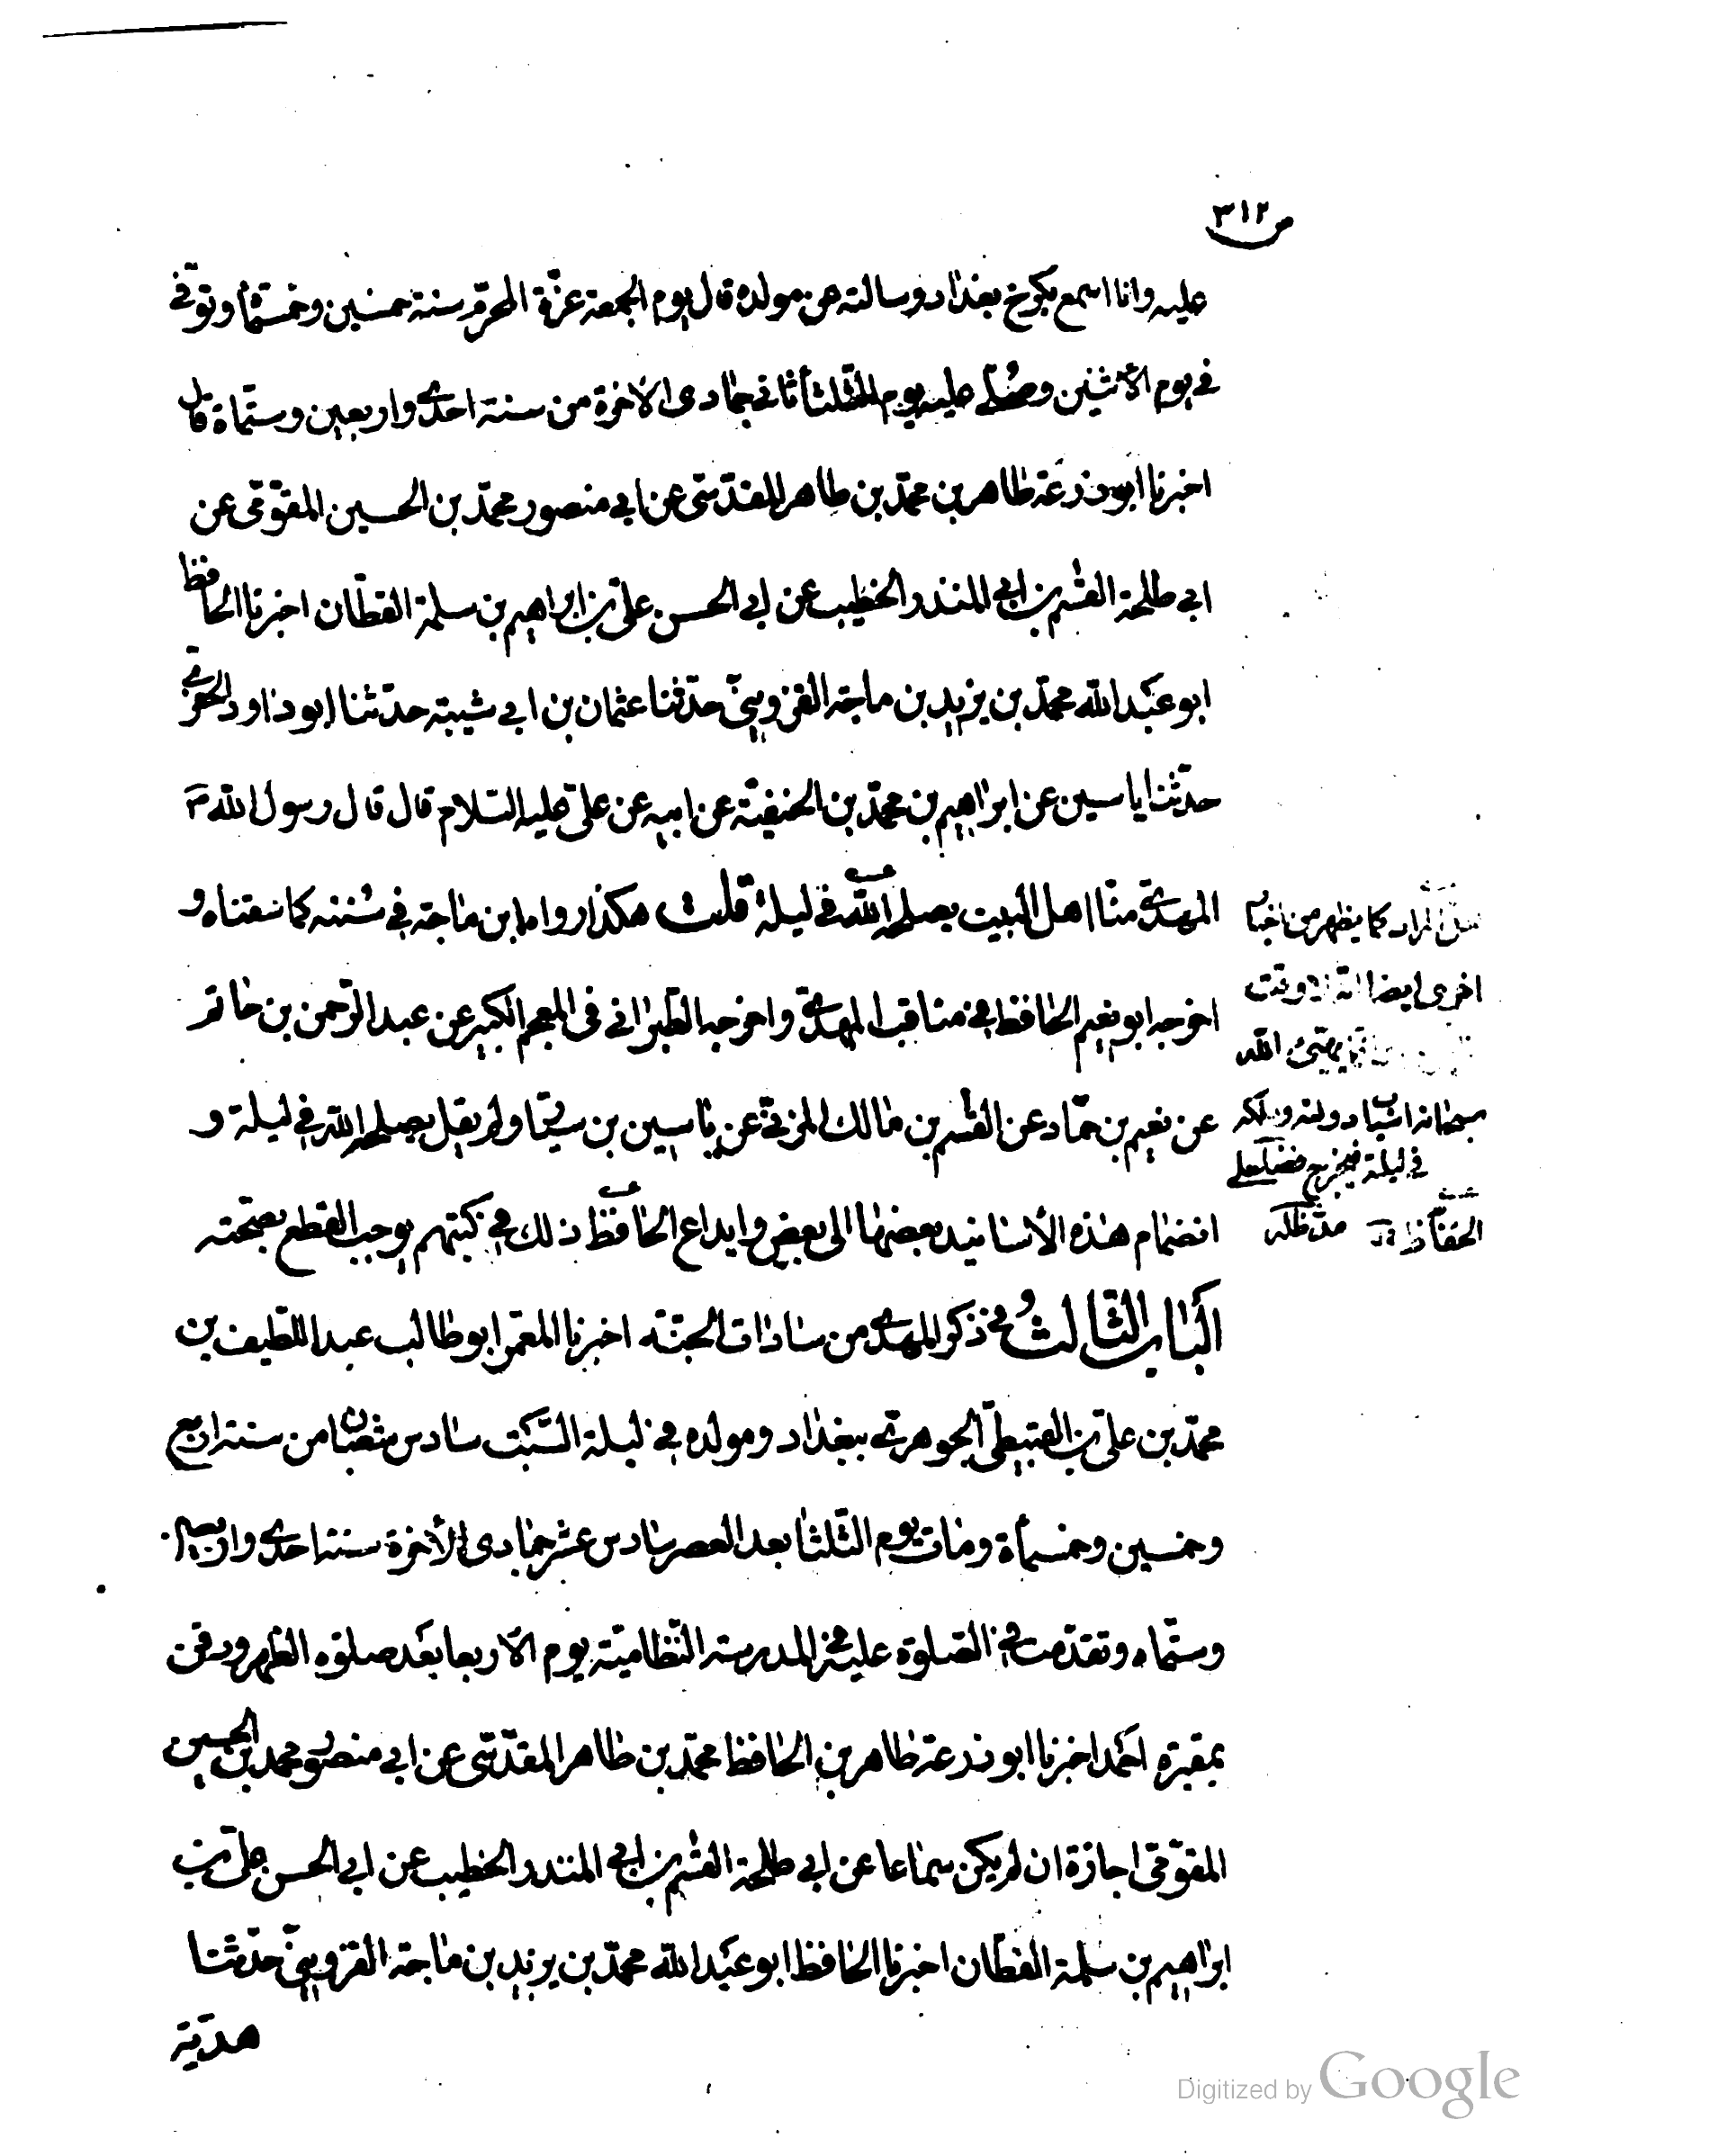 ص ٣١٢
عليه وانا اسمع بكرخ بغداد وسالته عن مولده قال يوم الجمعة غرّة المحرّم سنة خمسين وخمسمأ وتوفى
فى يوم الأثنين وصُلّى عليه يوم الثلثأ ثانى جمادى الاخرة من سنة احدى واربعين وستمأة قال
اخبرنا ابو زرعة طاهر بن محمّد بن طاهر المقدّسى عن ابى منصور محمّد بن الحسين المقوّمى عن
ابى طلحة القسم بن ابى المنذر الخطيب عن ابى الحسن علىّ بن ابراهيم بن سلمة القطّان اخبرنا الحافظ
ابو عبد الله محمّد بن يزيد بن ماجة القزوينىّ حدّثنا عثمان بن ابى شيبة حدّثنا ابو داود الحفرى
حدّثنا ياسين عن ابراهيم بن محمّد بن الحنفيّة عن ابيه عن علىّ عليه السّلام قال قال رسول الله ص
المهدىّ منّا اهل البيت يصلحه الله فى ليلة قلت هكذا رواه ابن ماجة فى سُننه كما سقناه و
اخرجه ابو نعيم الحافظ فى مناقب المهدىّ واخرجه الطّبرانى فى المعجم الكبير عن عبد الرّحمن بن حاتم
عن نعيم بن حمّاد عن القسم بن مالك المزنىّ عن ياسين بن سيّار ولم يقل يصلحه الله فى ليلة و
انضمام هذه الأسانيد بعضها الى بعض وايداع الحافظ ذلك فى كتبهم يوجب القطع بصحّته
الَباب الثّالثُ فى ذكر المهدى من سادات الجنّة اخبرنا المعمّر ابو طالب عبد اللطيف بن
محمّد بن علىّ بن القبيطىّ الجوهرىّ ببغداد ومولده فى ليلة السّبت سادس شعبان من سنة اربع
وخمسين وخمسمأة ومات يوم الثلثا بعد العصر سادس عشر جمادى الأخرة سنة احدى واربعين
وستّماه وتقدّمت فى الصّلوة عليه فى المدرسة النّظاميّة يوم الأربعا بعَد صلوة الظهر ودفن
بمقبرة احَمد اخبرنا ابو زرعة طاهر بن الحافظ محمّد بن طاهر المقدّسى عن ابى منصور محمد بن الحسين
المقوّمى اجازة ان لم يكن سماعا عن ابى طلحة القسم بن ابى المنذر الخطيب عن ابى الحسن علىّ بن
ابراهيم بن سلمة القطّان اخبرنا الحافظ ابو عبَد الله محمّد بن يزيد بن ماجة القزوينىّ حدّثنا
هديّة
المراد كما يظهر من اخبار
اخرى ايضا انّه
يهيّئ الله
سبحانه اسباب دولته وملكه
فى ليلة فيخرج
الحفّاظ مدّ ظلّه
Digitized by Google